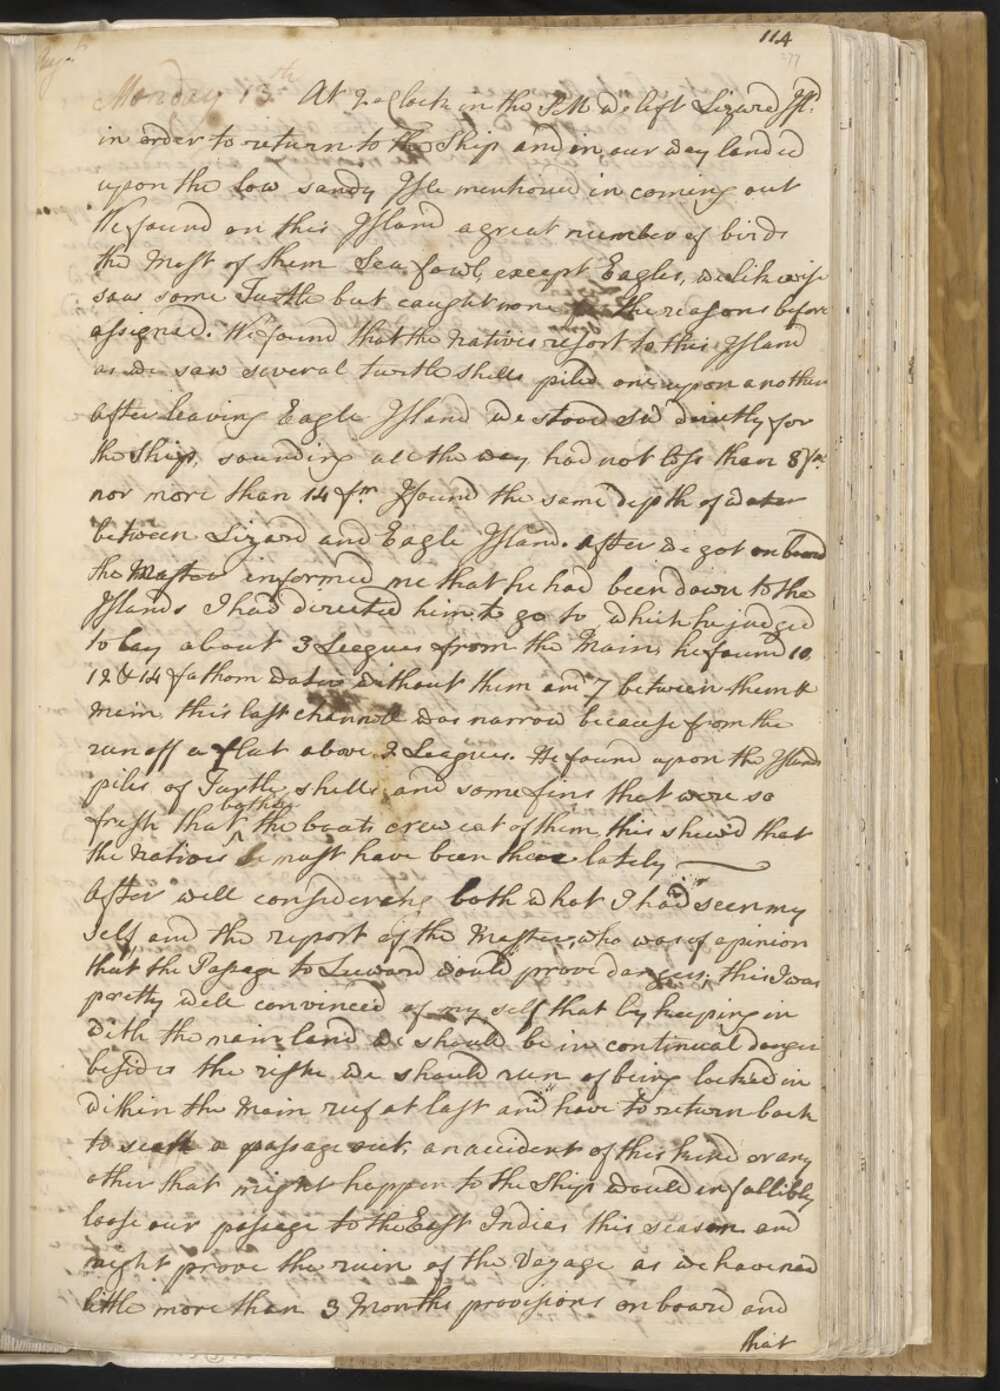 114
277
Augt
Monday 13th At 2 oClock in the PM we left Lizard Isld
in order to return to the Ship and in our way landed
upon the low sandy Isle mentioned in coming out
We found on this Island a great number of birds
the most of them sea fowl, except Eagles, we likewise
saw some Turtle but caught none for the reasons before
assigned. We found that the Natives resort to this Island
as we saw several turtle shells piled one upon another
after leaving Eagle Island we stood SW directly for
the Ship, sounding all the way, had not less than 8 fm
nor more than 14 fm I found the same depth of water
between Lizard and Eagle Island. After we got on board
the Master informed me that he had been down to the
Islands I had directed him to go to, which he judged
to lay about 3 Leagues from the Main, he found 10
12 & 14 fathom water without them and 7 between them &
Main this last channell was narrow because from the
run off a flat above 2 Leagues. He found upon the Islands
piles of Turtle shells and some fins that were so
fresh that the boats crew eat of them, this shew'd that
the Natives must have been there lately
After well considering both what I had seen my
self and the report of the Master, who was of opinion
that the Passage to Leeward would prove dangers, this I was
pretty well convinced of my self that by keeping in
with the main land we should be in continual danger
besides the riske we should run of being locked in
within the Main reef at last and have to return back
to seek a passage out, an accident of this kind or any
other that might happen to the Ship would infallibly
loose our passage to the East Indies this season and
might prove the ruin of the Voyage as we have now
little more than 3 Months provisions on board and
that